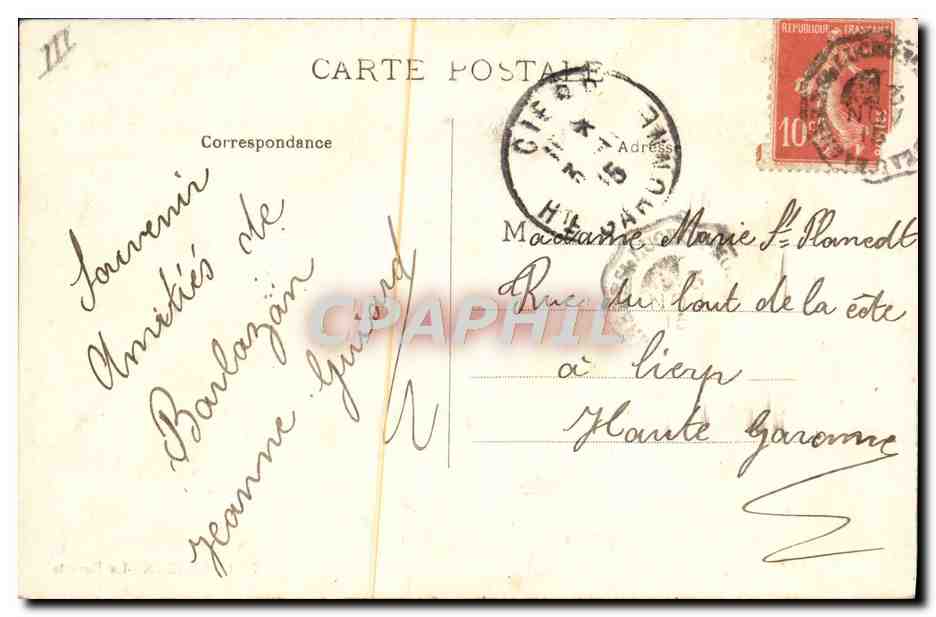 III
CARTE POSTALE
REPUBLIQUE FRANÇAISE
10c
Correspondance
Adresse
CIERP
15
HTE GARONNE
Souvenir
Amitiés de
Barbazan
Jeanne Guisard
Madame Marie St Planedt
Rue du bout de la côte
à Cierp
Haute Garonne
CPAPHIL